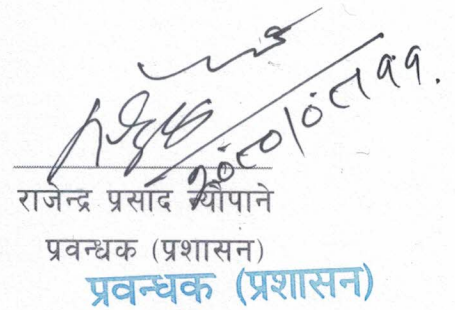 २०८०।०८।११.
राजेन्द्र प्रसाद न्यौपाने
प्रवन्धक (प्रशासन)
प्रवन्धक (प्रशासन)